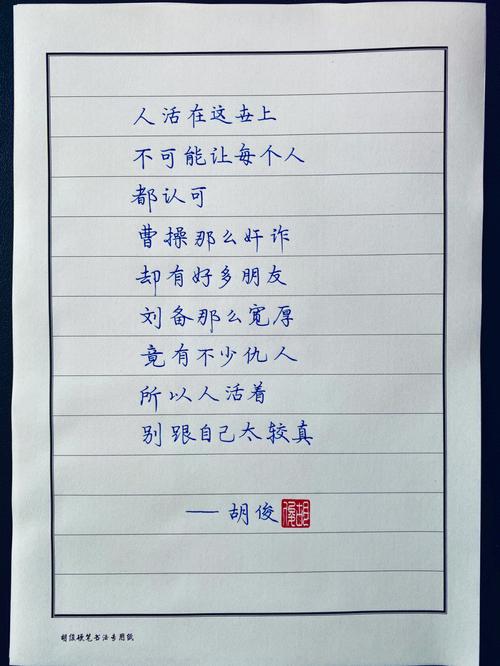 人活在这世上
不可能让每个人
都认可
曹操那么奸诈
却有好多朋友
刘备那么宽厚
竟有不少仇人
所以人活着
别跟自己太较真
——胡俊
胡俊
胡俊硬笔书法专用纸